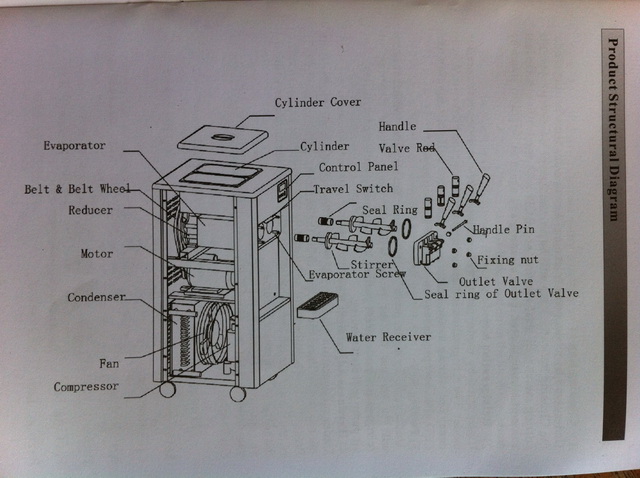 Product Structural Diagram
Cylinder Cover
Handle
Evaporator
Cylinder
Valve Rod
Control Panel
Belt & Belt Wheel
Travel Switch
Reducer
Seal Ring
Handle Pin
Motor
Stirrer
Fixing nut
Evaporator Screw
Outlet Valve
Condenser
Seal ring of Outlet Valve
Water Receiver
Fan
Compressor